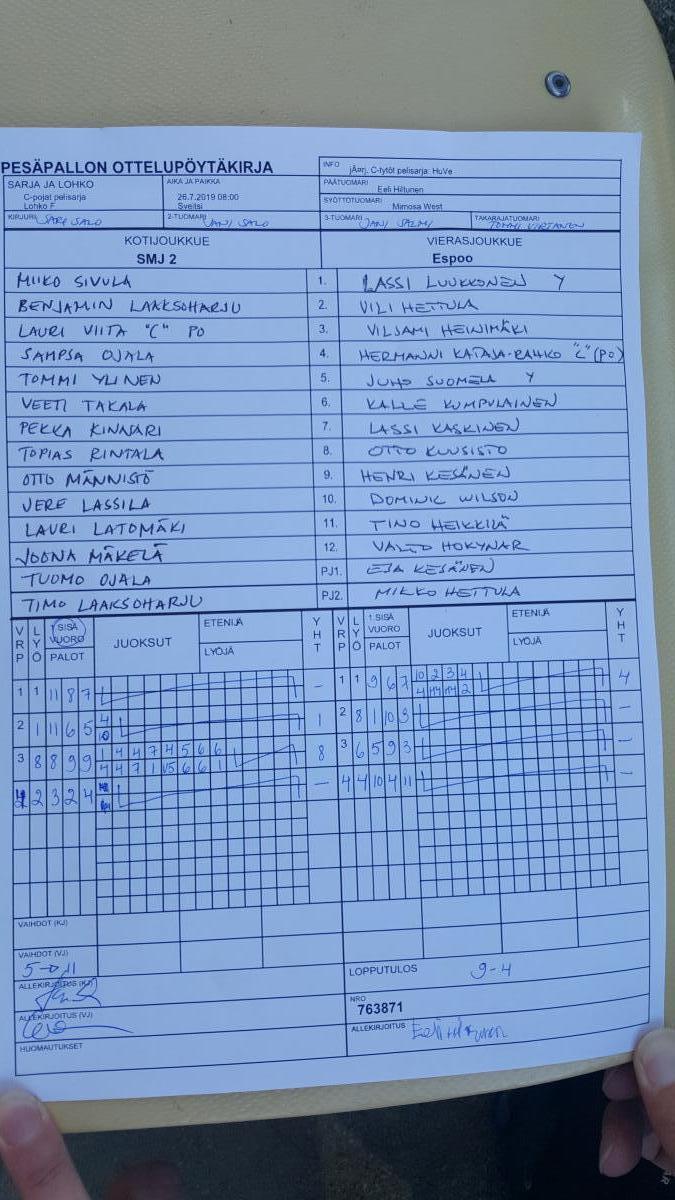 PESÄPALLON OTTELUPÖYTÄKIRJA
INFO jÄrj. C-tytöt pelisarja: HuVe
SARJA JA LOHKO
C-pojat pelisarja
Lohko F
AIKA JA PAIKKA
26.7.2019 08:00
Sveitsi
PÄÄTUOMARI
Eeli Hiltunen
SYÖTTÖTUOMARI
Mimosa West
KIRJURI SARI SALO
2-TUOMARI JANI SALO
3-TUOMARI JANI SALMI
TAKARAJATUOMARI
TOMMI VIRTANEN
KOTIJOUKKUE
SMJ 2
VIERASJOUKKUE
Espoo
MIIKO SIVULA 1. LASSI LUUKKONEN Y
BENJAMIN LAAKSOHARJU 2. VILI HETTULA
LAURI VIITA "C" PO 3. VILJAMI HEINIMÄKI
SAMPSA OJALA 4. HERMANNI KATAJA-RAHKO "C" (PO)
TOMMI YLINEN 5. JUHO SUOMELA Y
VEETI TAKALA 6. KALLE KUMPULAINEN
PEKKA KINNARI 7. LASSI KASKINEN
TOPIAS RINTALA 8. OTTO KUUSISTO
OTTO MÄNNISTÖ 9. HENRI KESÄNEN
VERE LASSILA 10. DOMINIK WILSON
LAURI LATOMÄKI 11. TINO HEIKKILÄ
JOONA MÄKELÄ 12. VALTO HOKYNAR
TUOMO OJALA PJ1. EJA KESÄNEN
TIMO LAAKSOHARJU PJ2. MIKKO HETTULA
VRP LYÖ 1.SISÄ VUORO PALOT JUOKSUT ETENIJÄ LYÖJÄ YHT
VRP LYÖ 1.SISÄ VUORO PALOT JUOKSUT ETENIJÄ LYÖJÄ YHT
1 1 11 8 7 – 1 1 9 6 7 10 2 3 4 4
4 14 14 2
2 1 11 6 5 4 1 2 8 1 10 3 –
10
3 8 8 9 9 1 4 4 7 4 5 6 6 8 3 6 5 9 3 –
4 4 7 1 15 6 6 1
4 2 3 2 4 – 4 4 10 4 11 –
VAIHDOT (KJ)
VAIHDOT (VJ)
5-0 11
LOPPUTULOS 9-4
ALLEKIRJOITUS (KJ)
NRO
763871
ALLEKIRJOITUS (VJ)
ALLEKIRJOITUS Eeli Hiltunen
HUOMAUTUKSET